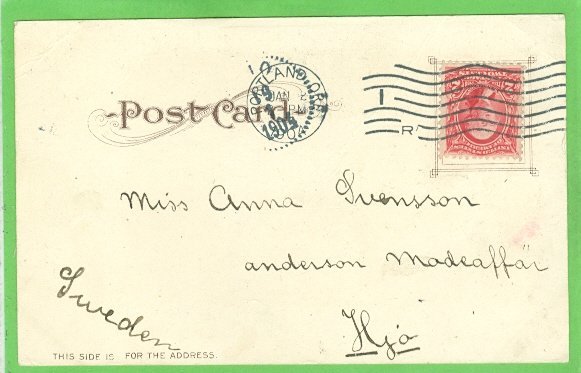 Post Card.
PORTLAND, ORE.
JAN
1905
R
Miss Anna Svensson
anderson Modeaffär
Hjo
Sweden
THIS SIDE IS FOR THE ADDRESS.